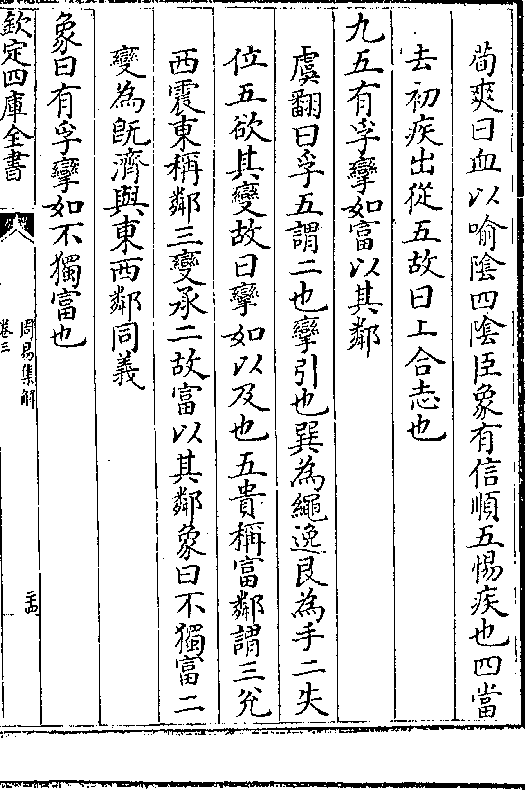 荀爽曰血以喻隂四隂臣象有信順五惕疾也四當
去初疾出從五故曰上合志也
九五有孚攣如富以其鄰
虞翻曰孚五謂二也攣引也巽為繩逸艮為手二失
位五欲其變故曰攣如以及也五貴稱富鄰謂三兊
西震東稱鄰三變承二故富以其鄰象曰不獨富二
變為既濟與東西鄰同義
象曰有孚攣如不獨富也
欽定四庫全書
周易集解
卷三